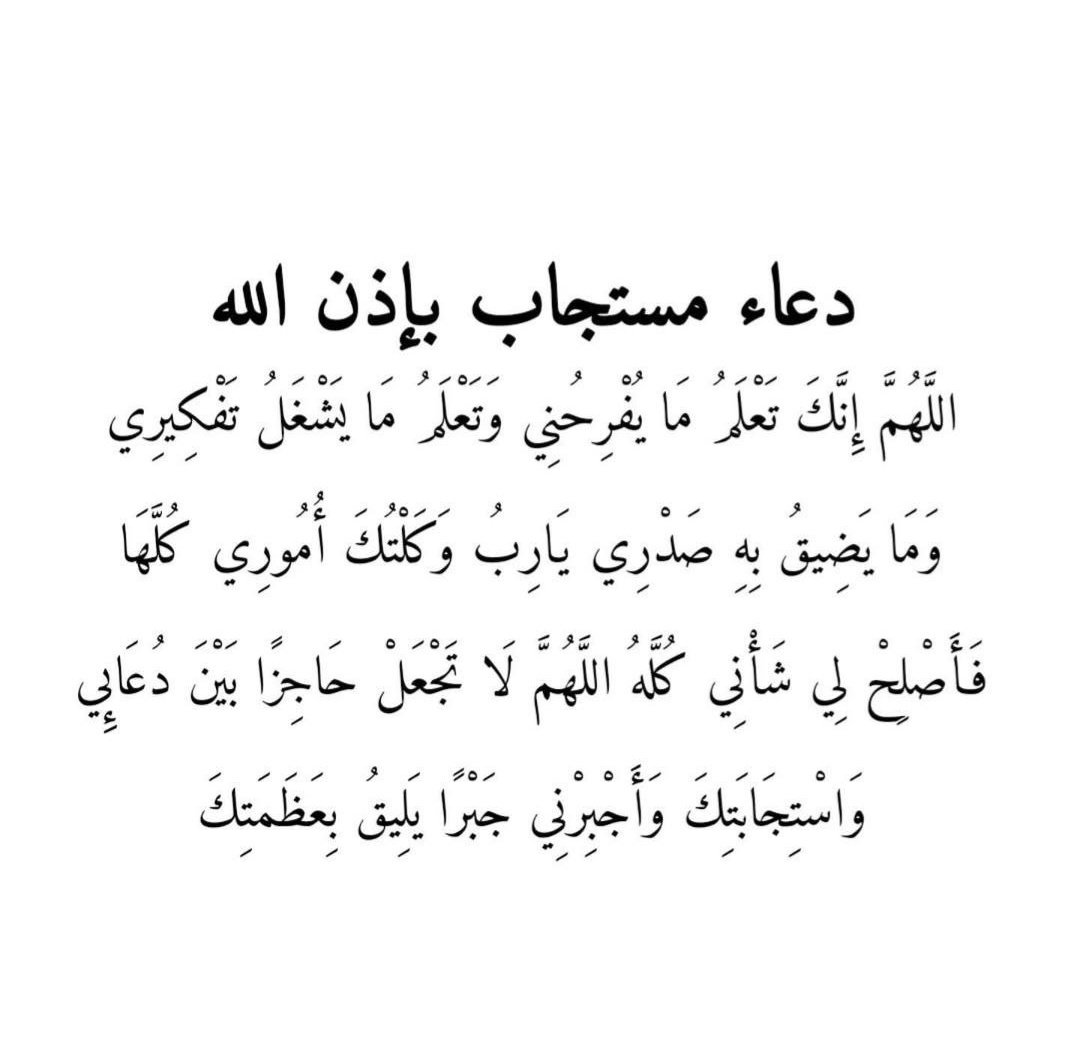 دعاء مستجاب بإذن الله
اللَّهُمَّ إِنَّكَ تَعْلَمُ مَا يُفْرِحُنِي وَتَعْلَمُ مَا يَشْغَلُ تَفْكِيرِي
وَمَا يَضِيقُ بِهِ صَدْرِي يَارِبُ وَكَلْتُكَ أُمُورِي كُلَّهَا
فَأَصْلِحْ لِي شَأْنِي كُلَّهُ اللَّهُمَّ لَا تَجْعَلْ حَاجِزًا بَيْنَ دُعَإِي
وَاسْتِجَابَتِكَ وَأَجْبِرْنِي جَبْرًا يَلِيقُ بِعَظَمَتِكَ